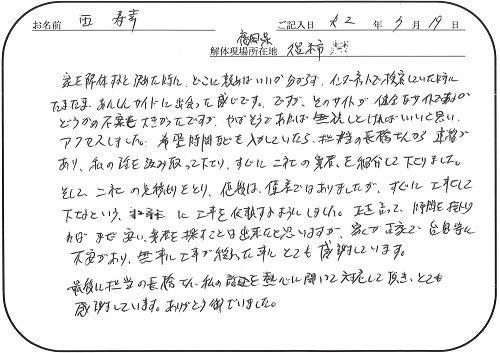 お名前 西 寿幸 ご記入日 R2年 3月 19日
福岡県
解体現場所在地
家を解体すると決めた時に、どこに頼めばいいか分からず、インターネットで検索していた時に
たまたま、あんしんガイドに出会った感じです。ですが、そのサイトが健全なサイトであるか
どうかの不安も大きかったですが、やばそうであれば無視しとければいいと思い、
アクセスしました。希望時間なども入力していたら、担当の長橋さんから連絡が
あり、私の話を汲み取って下さり、すぐに二社の業者を紹介して下さりました。
そして、二社の見積りをとり、値段は、僅差ではありましたが、すぐに工事して
下さるという、に工事を依頼するようにしました。正直言って、時間を掛け
れば まだ安い業者を探すことは出来たと思いますが、で
不安があり、無事に工事が終わった事にとても感謝しています。
最後に担当の長橋さん、私の話を熱心に聞いて対応して頂き、とても
感謝しています。ありがとう御ざいました。